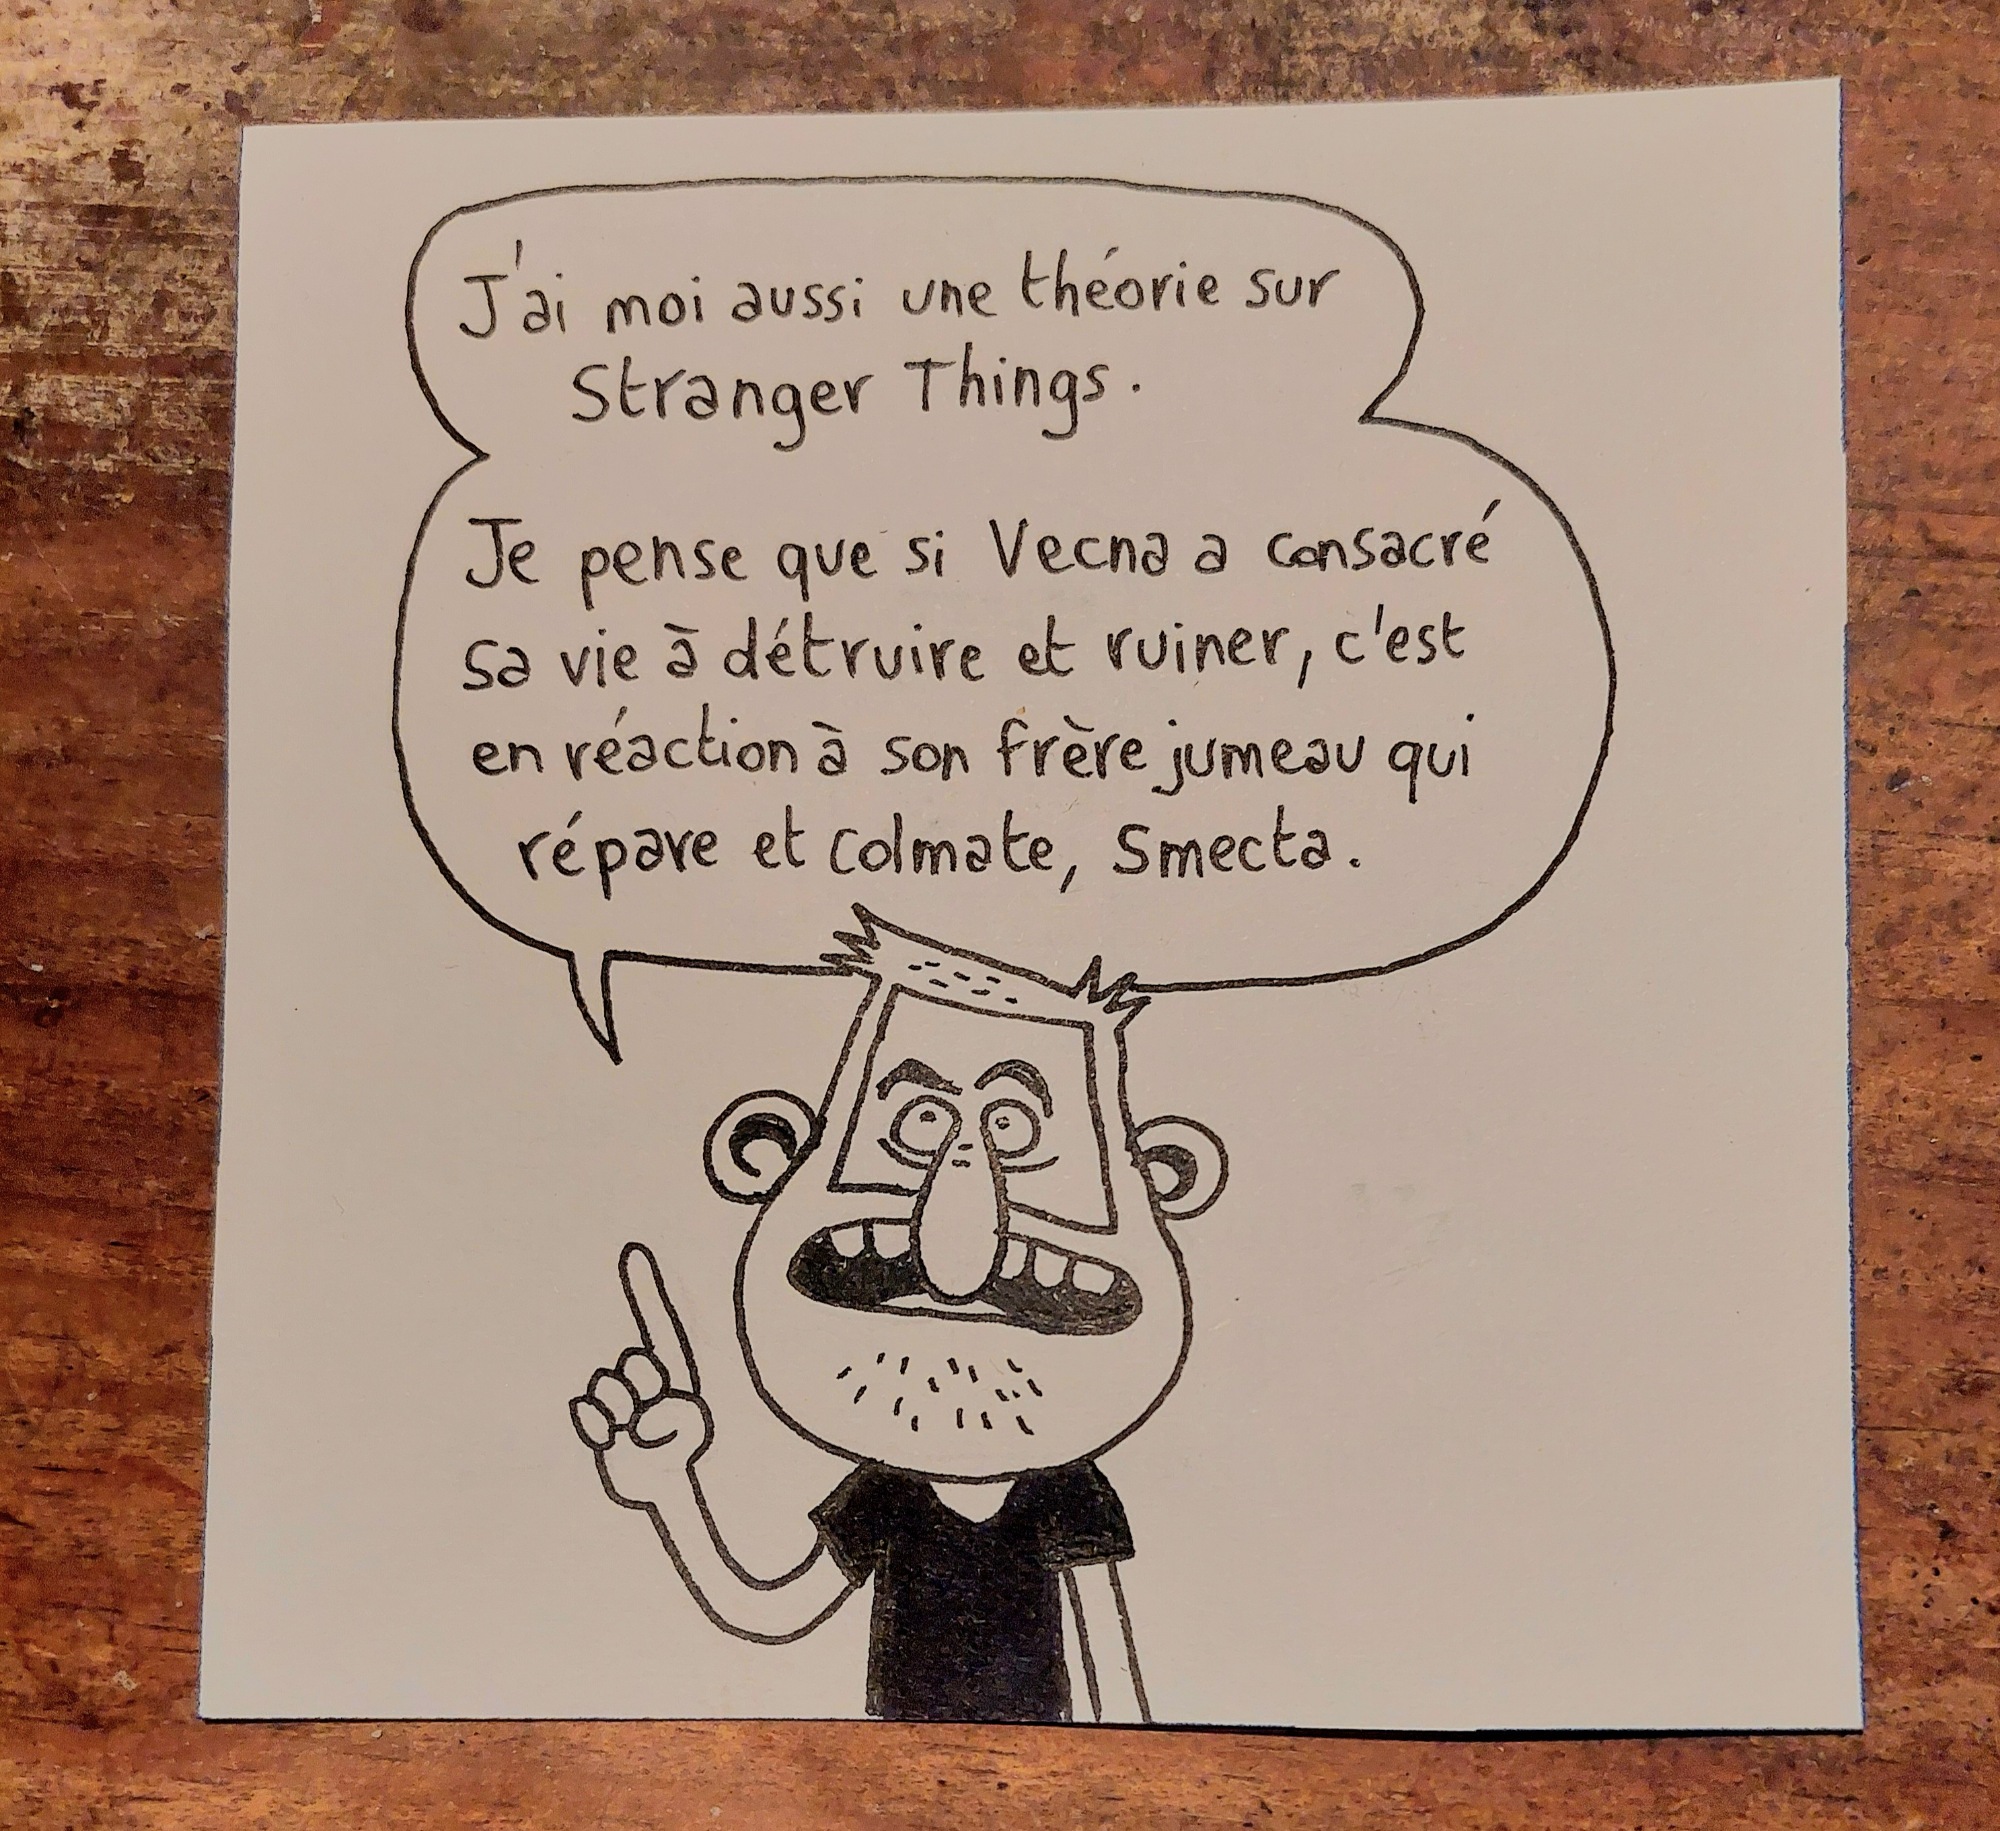 J'ai moi aussi une théorie sur
Stranger Things.
Je pense que si Vecna a consacré
sa vie à détruire et ruiner, c'est
en réaction à son frère jumeau qui
répare et colmate, Smecta.